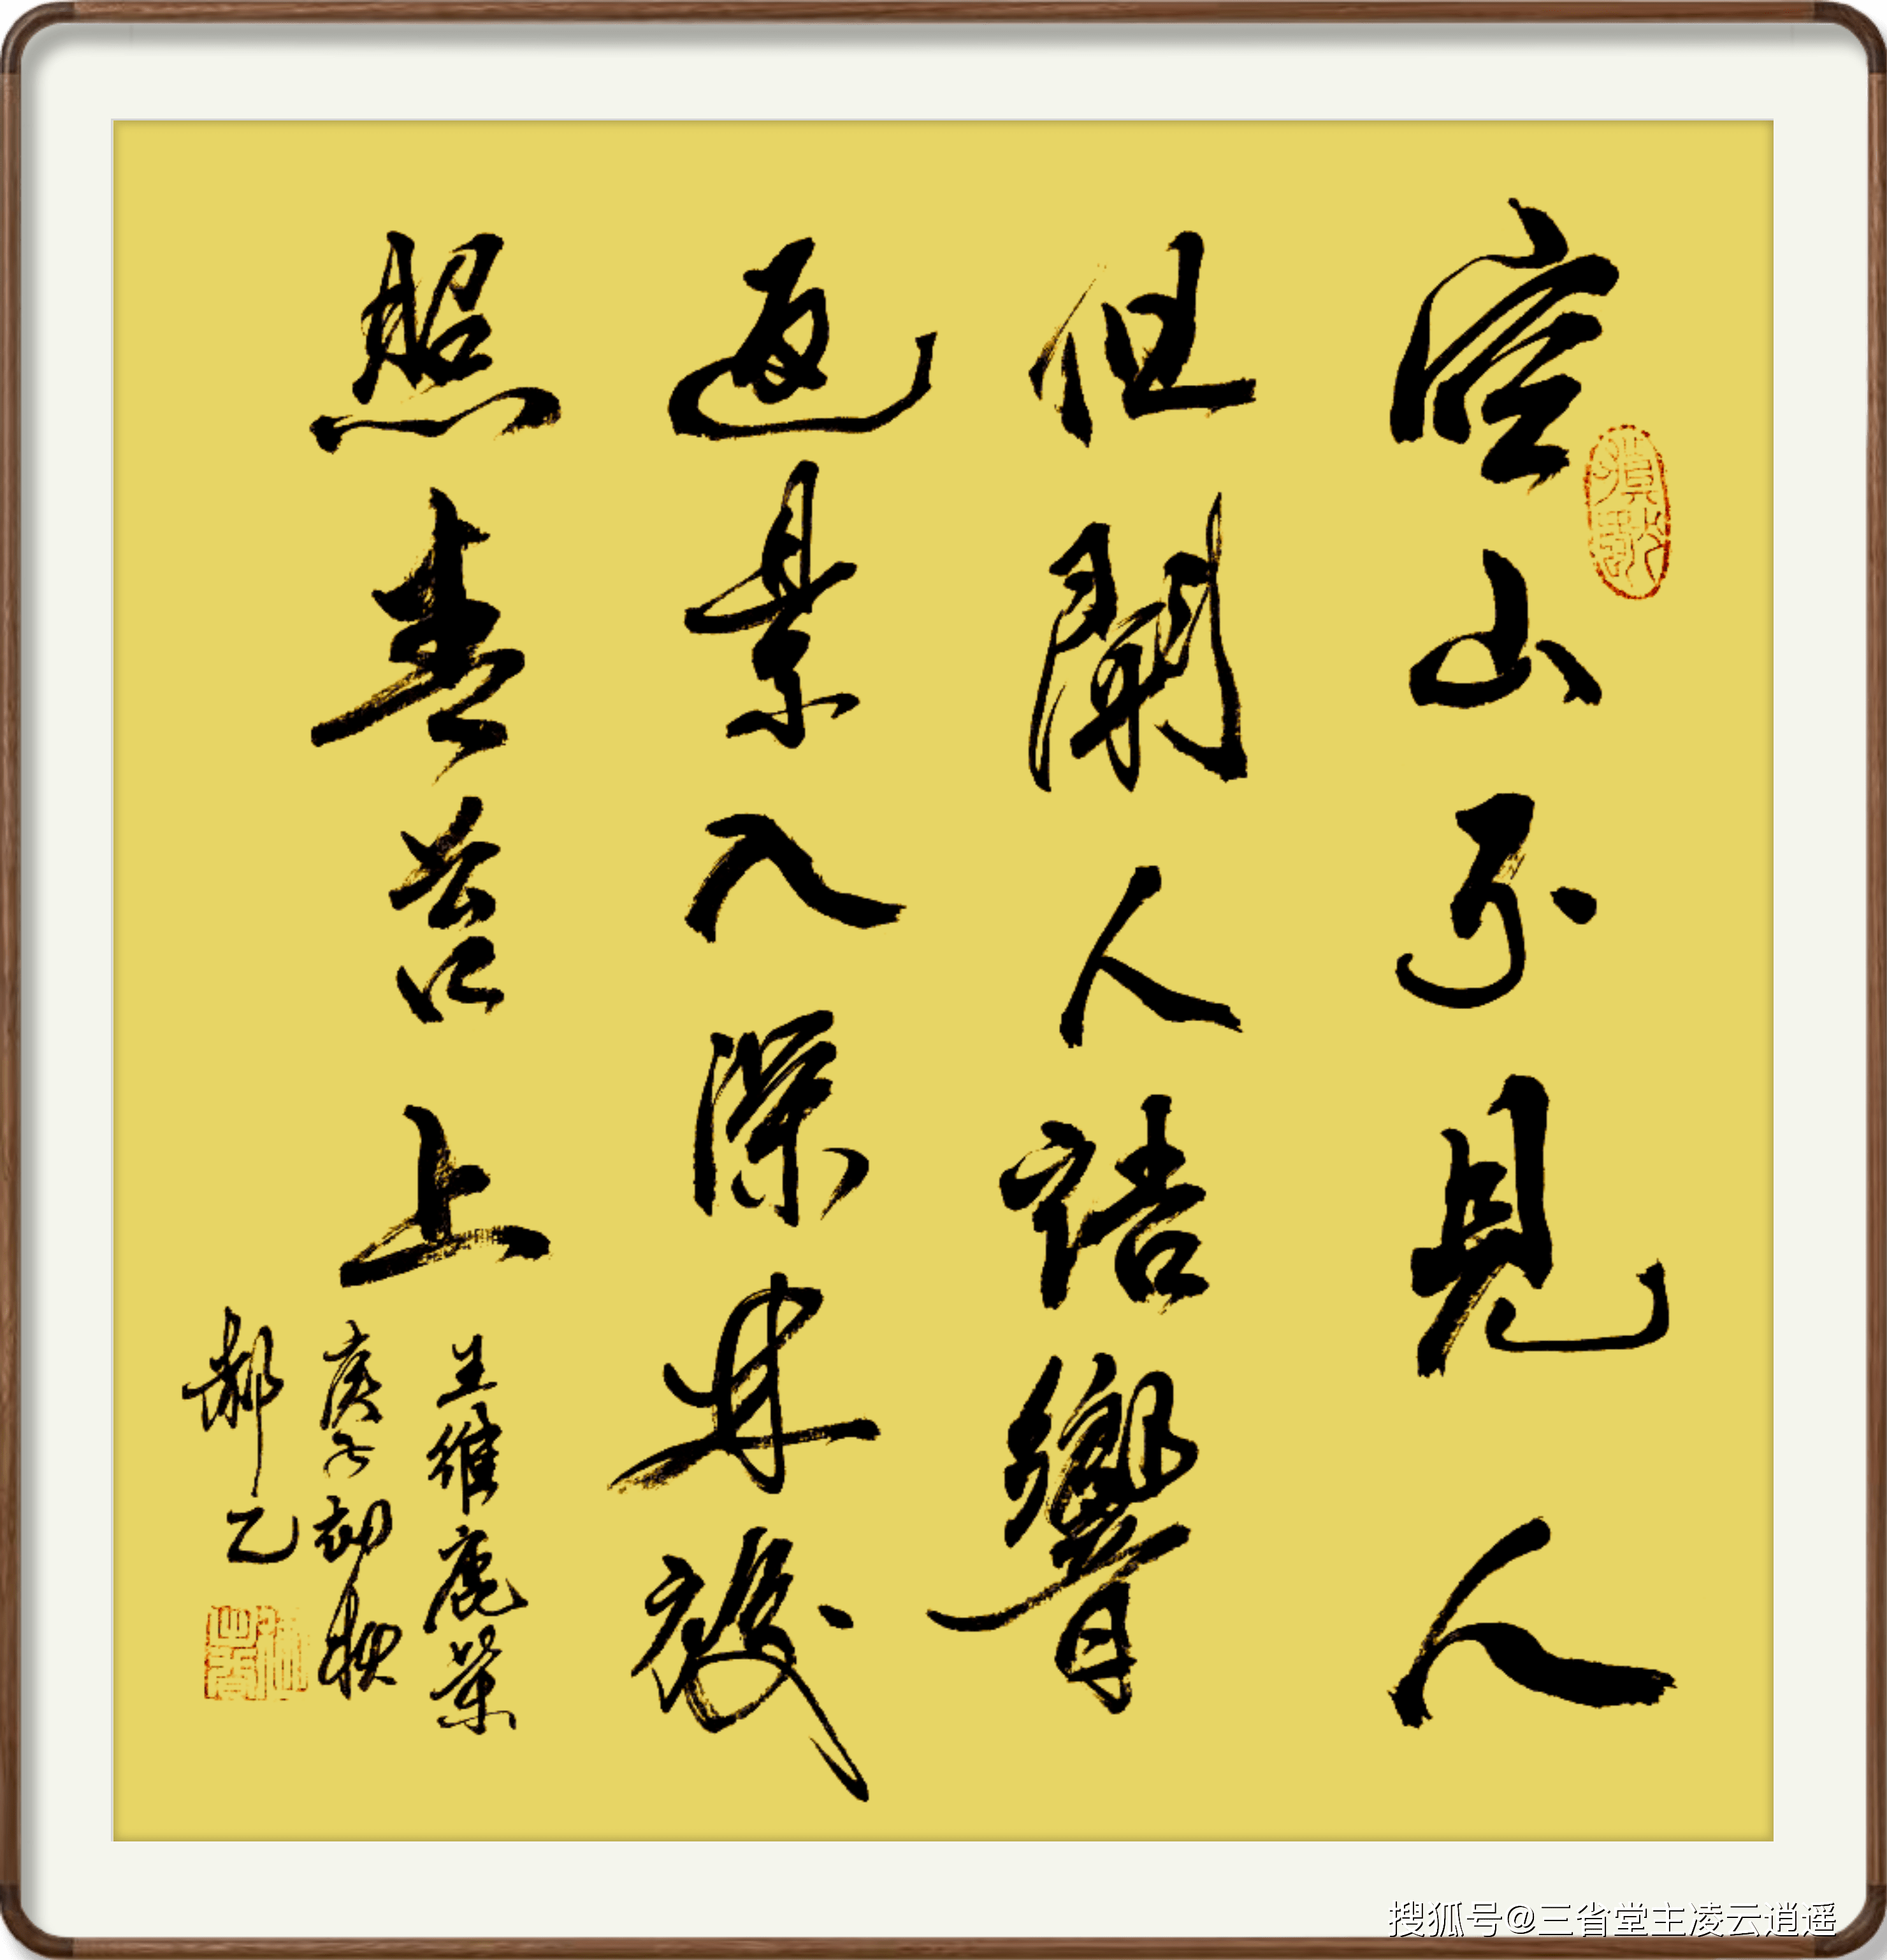 空山不見人
但聞人語響
返景入深林復
照青苔上
王維鹿柴
庚子初秋
搜狐号@三省堂主凌云逍遥